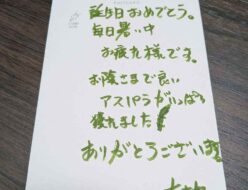 誕生日おめでとう。
毎日暑い中
お疲れ様です。
お陰さまで良い
アスパラがいっぱい
獲れました!
ありがとうございます